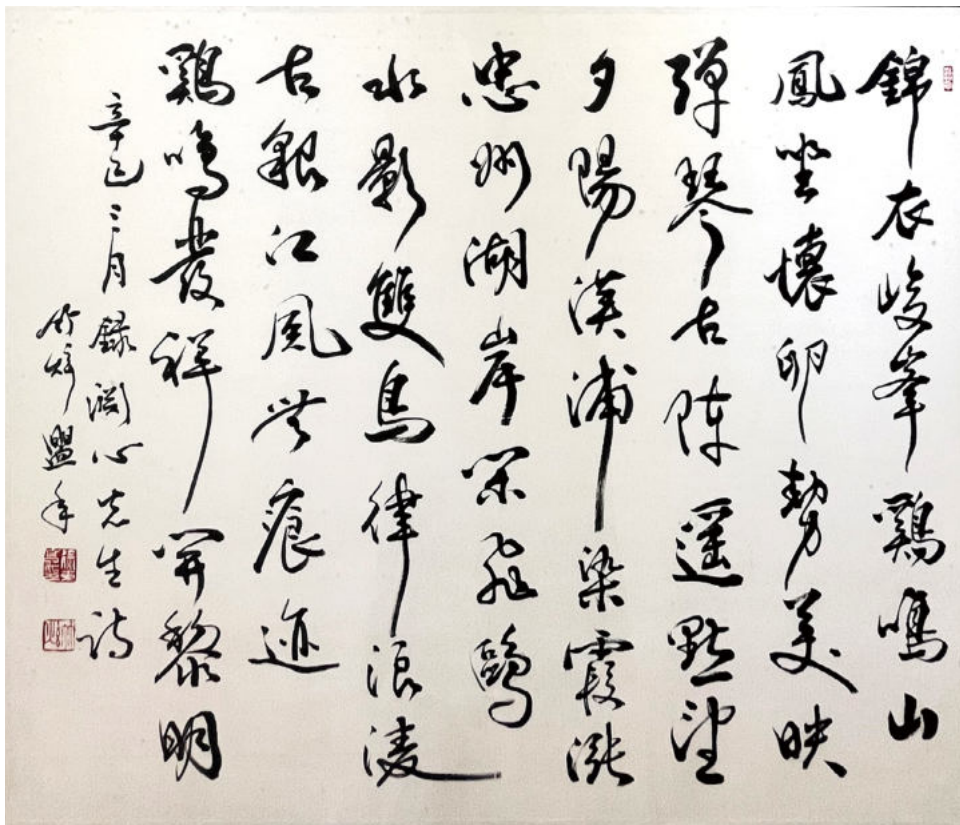 錦衣峻峯鷄鳴山
鳳坐懷卵勢美映
彈琴古陣遥點望
夕陽漢浦染霞漲
忠州湖岸閑飛鷗
水影雙鳥律浪淩
古艱江風痕迹
鷄鳴發祥開黎明
辛巳三月錄淵心先生詩
竹盥手